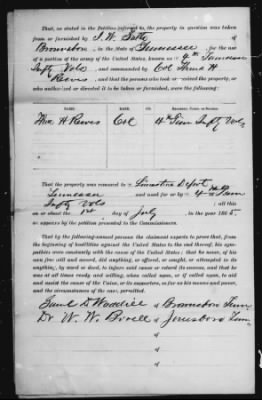 That, as stated in the Petition referred to, the property in question was taken
from or furnished by J. W. of
Brownsboro, in the State of Tennessee, for the use
of a portion of the army of the United States, known as 4th Tennessee
Infty Vols, and commanded by Col H
Reeves, and that the persons who took or received the property, or
who authorized or directed it to be taken or furnished, were the following:
NAME. RANK. REGIMENT, CORPS, OR STATION.
Wm H Reeves Col 4th Tenn Infty Vols
That the property was removed to Limestone Depot
Tennessee and used for or by 4th Tenn
Infty Vols ; all this
on or about the 1st day of July, in the year 1865,
as appears by the petition presented to the Commissioners.
That by the following-named persons the claimant expects to prove that, from
the beginning of hostilities against the United States to the end thereof, his sympathies
were constantly with the cause of the United States; that he never, of his
own free will and accord, did anything, or offered, or sought, or attempted to do
anything, by word or deed, to injure said cause or retard its success, and that he
was at all times ready and willing, when called upon, or if called upon, to aid
and assist the cause of the Union, or its supporters, so far as his means and power,
and the circumstances of the case, permitted.
Saml D of Brownsboro Tenn
Dr. W. W. of Jonesboro Tenn
of
of
of